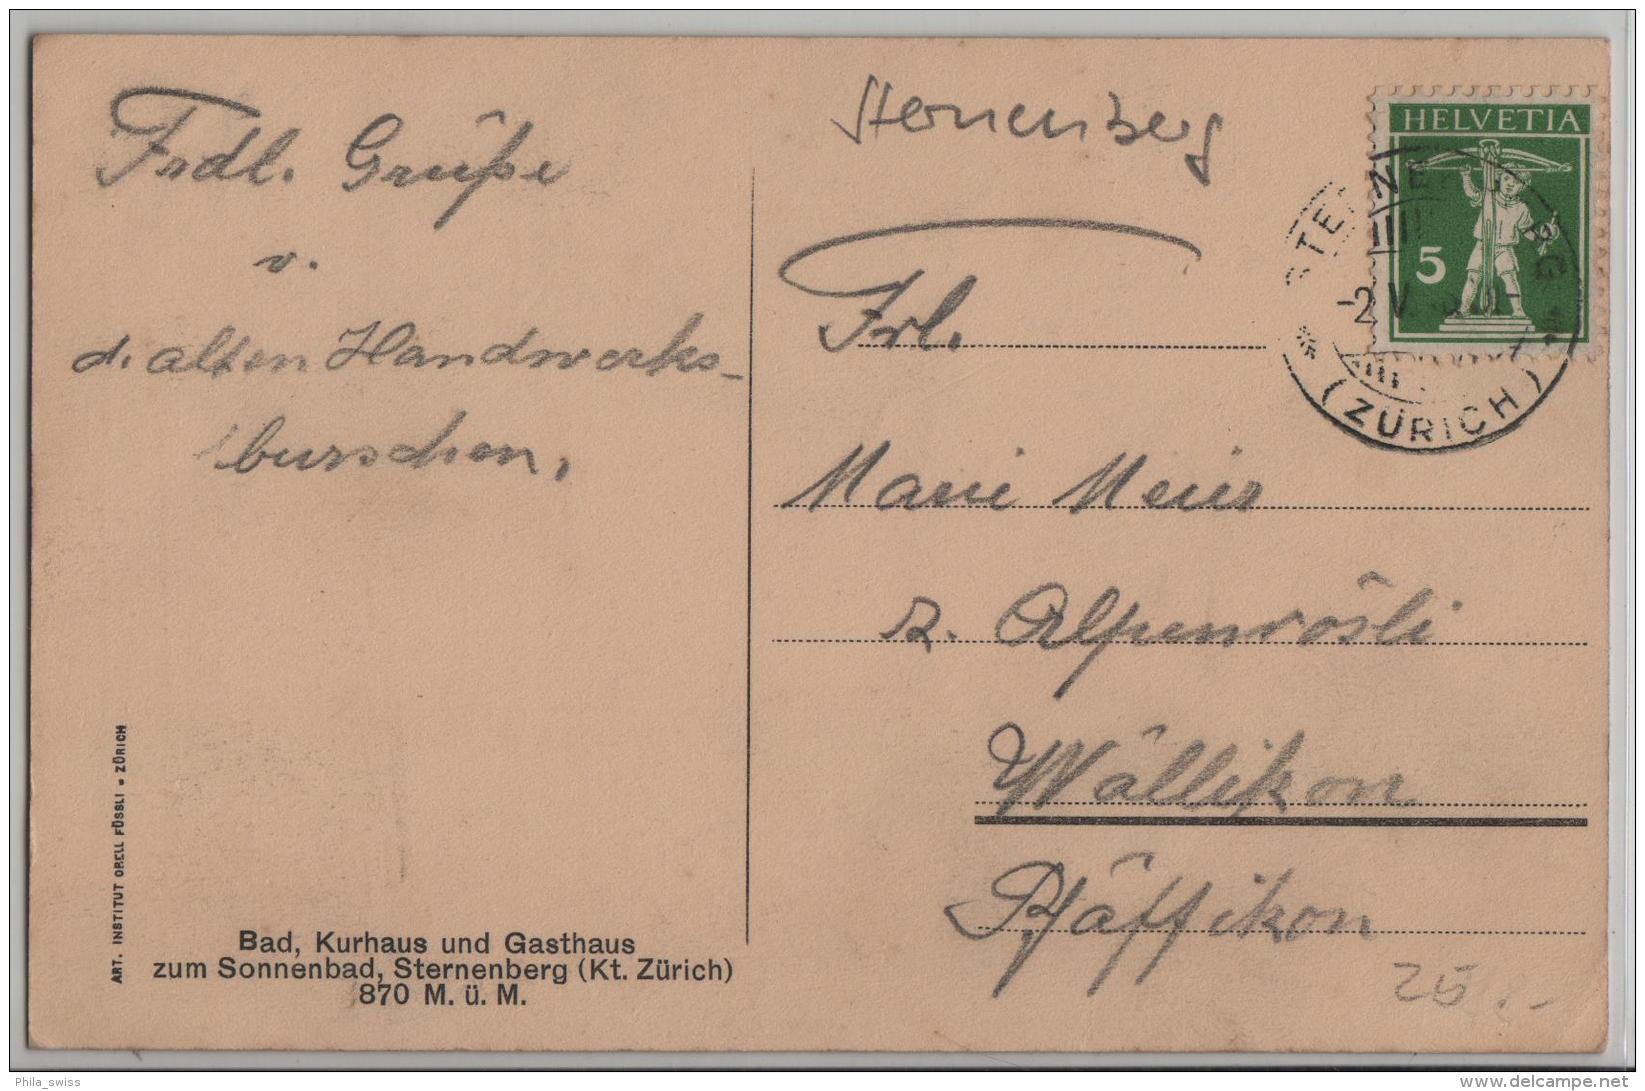 Frdl. Grüße
v.
d. alten Handwerks-
burschen.
Sternenberg
HELVETIA
5
STERNENBERG
-2.V.
(ZÜRICH)
Frl.
Marie Meier
z. Alpenrösli
Wällikon
Pfäffikon
25.-
ART. INSTITUT ORELL FÜSSLI - ZÜRICH
Bad, Kurhaus und Gasthaus
zum Sonnenbad, Sternenberg (Kt. Zürich)
870 M. ü. M.
Phila_swiss
delcampe.net